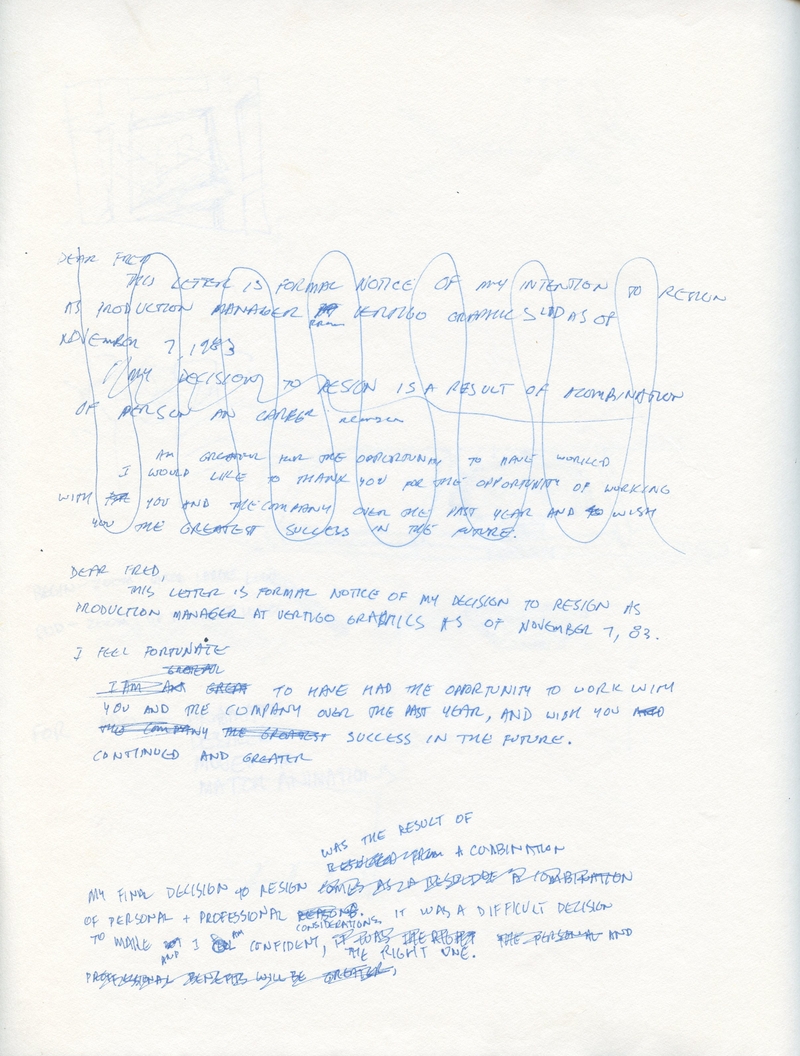 DEAR FRED
THIS LETTER IS FORMAL NOTICE OF MY INTENTION TO RESIGN
AS PRODUCTION MANAGER FROM VERTIGO GRAPHICS LTD AS OF
NOVEMBER 7, 1983
MY DECISION TO RESIGN IS A RESULT OF A COMBINATION
OF PERSON AN CAREER
AM GREATFUL FOR THE OPPORTUNITY TO HAVE WORKED
I WOULD LIKE TO THANK YOU FOR THE OPPORTUNITY OF WORKING
WITH THE YOU AND THE COMPANY OVER THE PAST YEAR AND TO WISH
YOU THE GREATEST SUCCESS IN THE FUTURE.
DEAR FRED,
THIS LETTER IS FORMAL NOTICE OF MY DECISION TO RESIGN AS
PRODUCTION MANAGER AT VERTIGO GRAPHICS AS OF NOVEMBER 7, 83.
I FEEL FORTUNATE
GRATEFUL
I AM GREAT TO HAVE HAD THE OPPORTUNITY TO WORK WITH
YOU AND THE COMPANY OVER THE PAST YEAR, AND WISH YOU AND
THE COMPANY THE GREATEST SUCCESS IN THE FUTURE.
CONTINUED AND GREATER
WAS THE RESULT OF
RESULTED FROM A COMBINATION
MY FINAL DECISION TO RESIGN COMES AS A RESULT OF A COMBINATION
OF PERSONAL + PROFESSIONAL REASONS. IT WAS A DIFFICULT DECISION
CONSIDERATIONS.
TO MAKE I AM CONFIDENT, IT WAS THE RIGHT THE PERSONAL AND
AND THE RIGHT ONE.
PROFESSIONAL BENEFITS WILL BE GREATER,